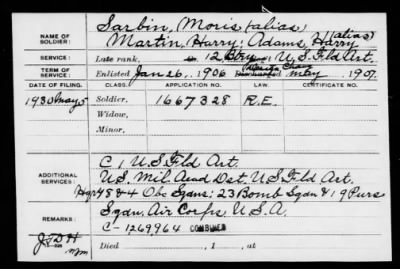 Sarbin, Moris (alias)
NAME OF SOLDIER: Martin, Harry; Adams, Harry (alias)
SERVICE: Late rank, 12 Btry U.S. Fld Art.
TERM OF SERVICE: Enlisted Jan 26, 1906 May, 1907.
DATE OF FILING. CLASS. APPLICATION NO. LAW. CERTIFICATE NO.
1930 May 5 Soldier, 1667328 R.E.
Widow,
Minor,
C/ U.S. Fld Art.
ADDITIONAL SERVICES: U.S. Mil Acad Det. U.S. Fld Art.
Hqr 48 & 4 Obs Sqdns; 23 Bomb Sqdn & 19 Purs
REMARKS: Sqdn. Air Corps U.S.A.
C-1269964 COMBINED
Died , 1 , at